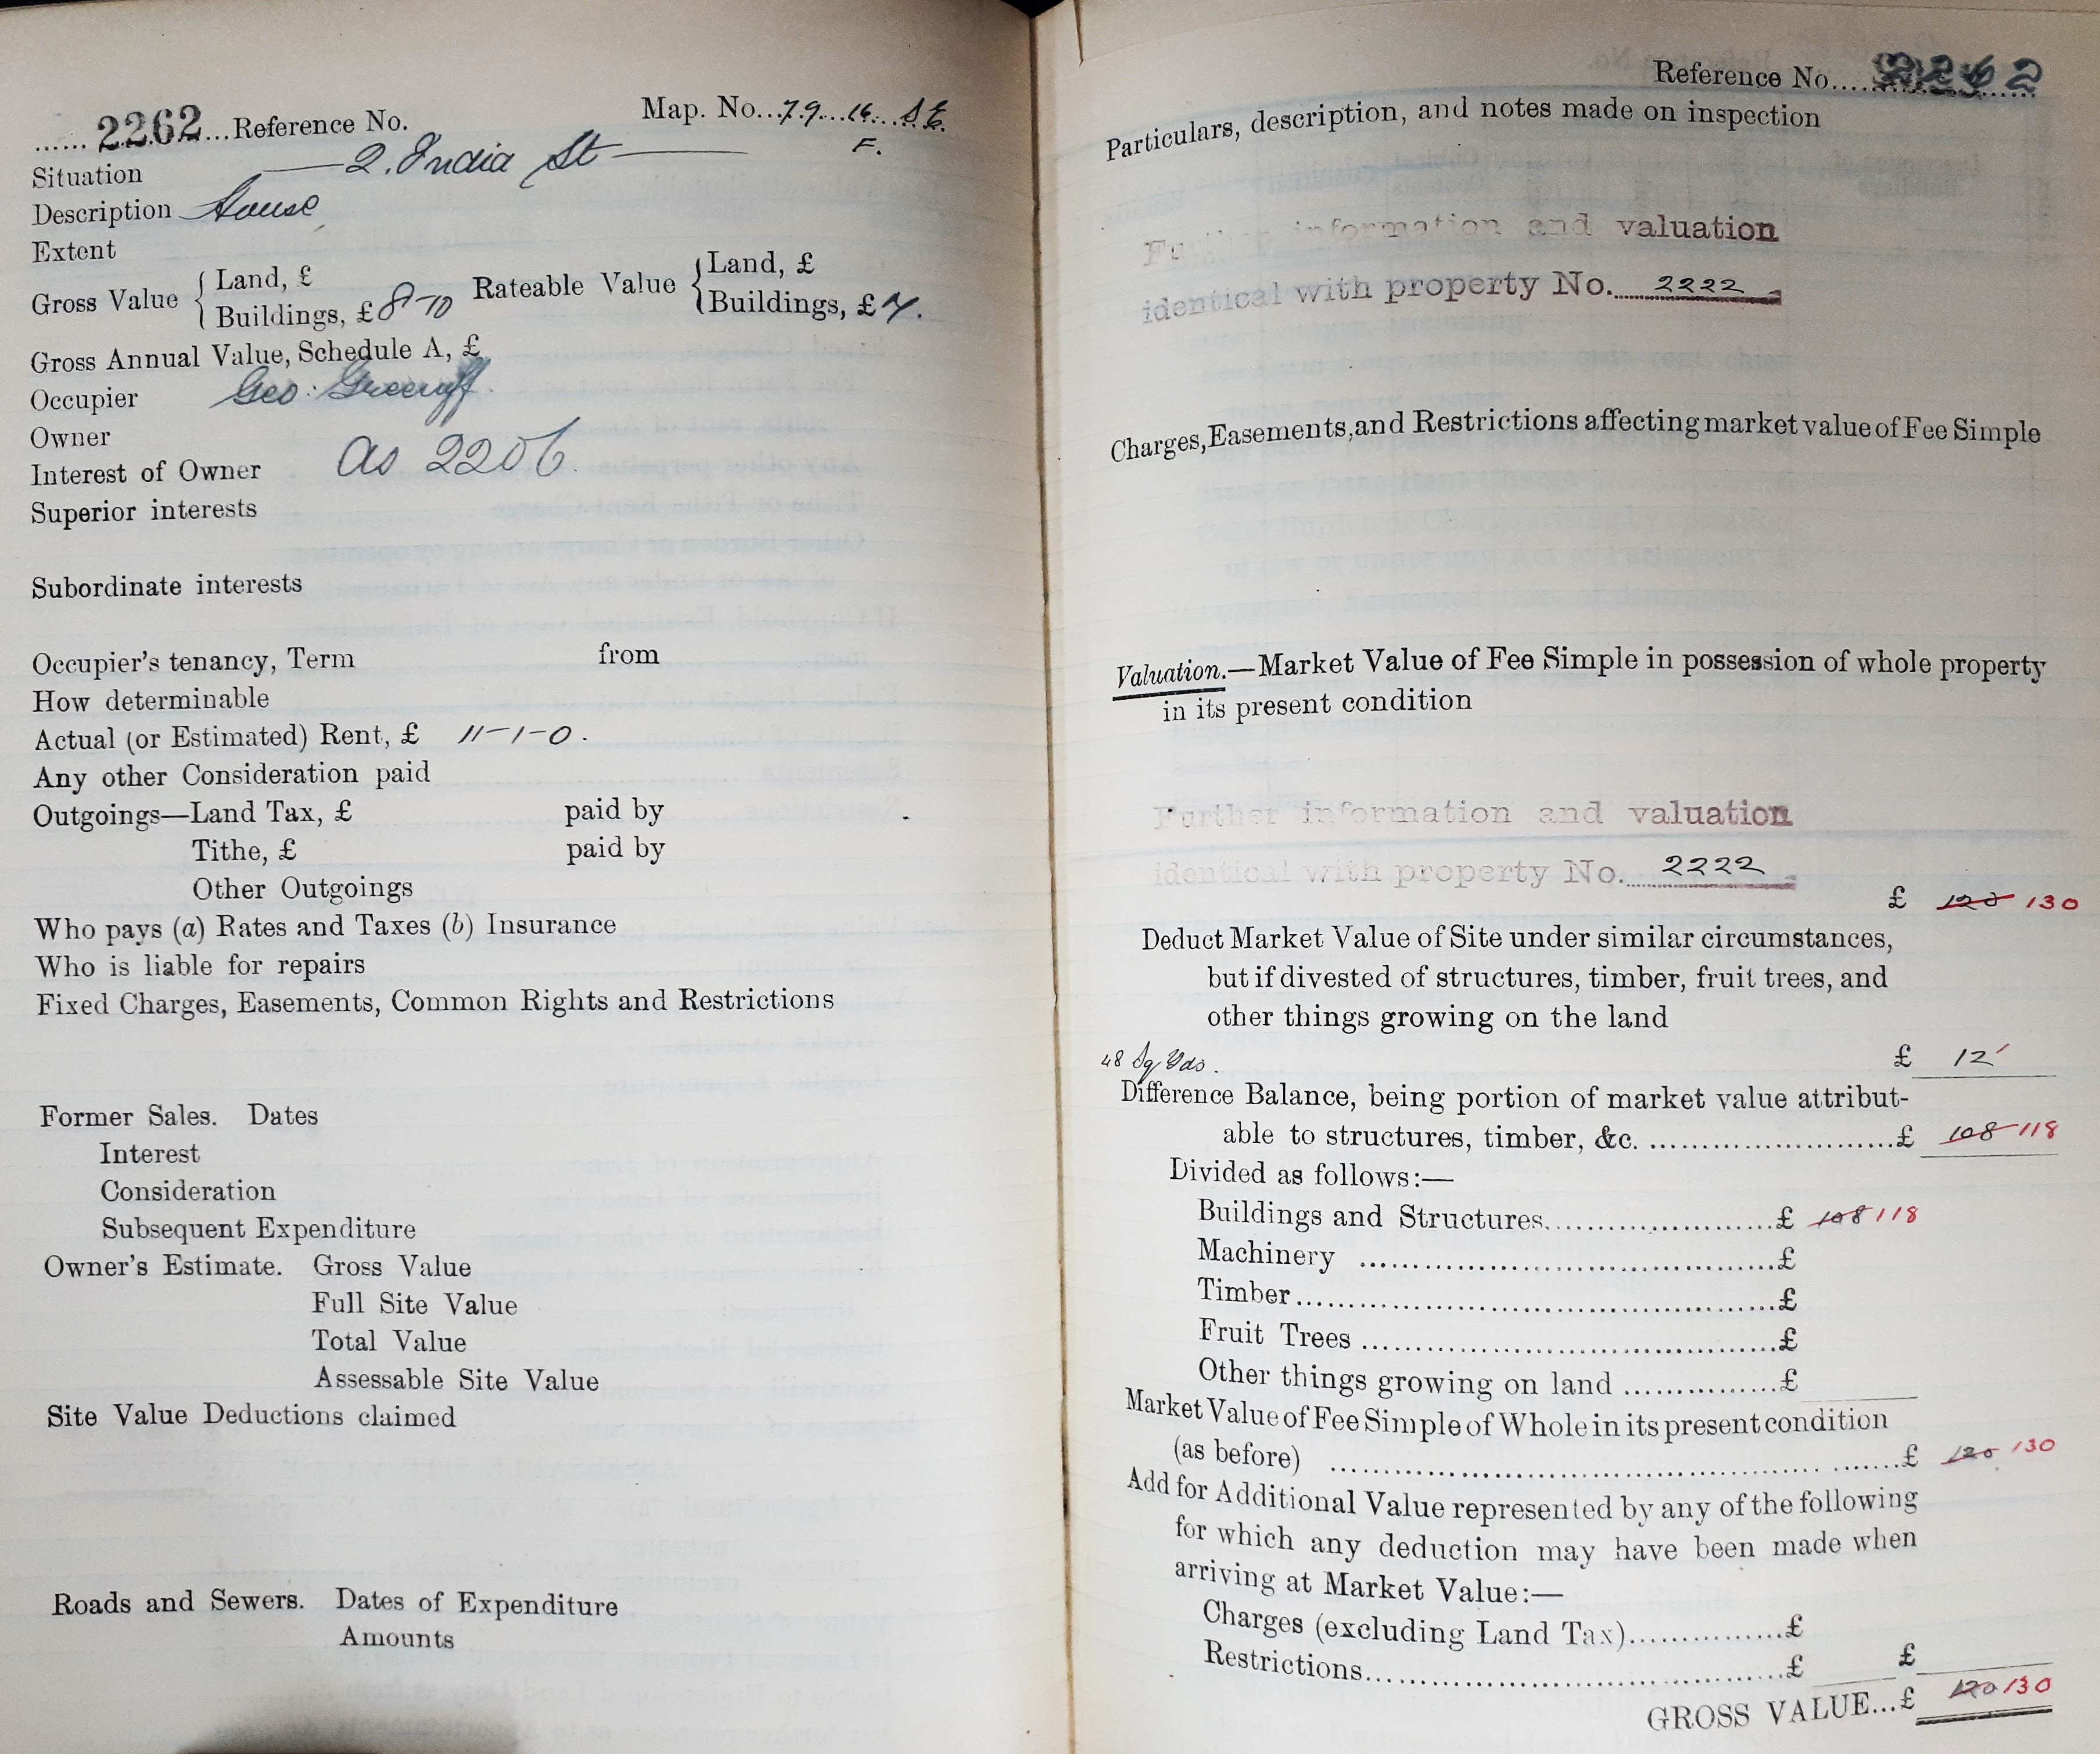 ...... 2262 ... Reference No. Map. No... 79. 14. S.E.
F.
Situation — 2. India St —
Description House
Extent
Gross Value { Land, £ Rateable Value { Land, £
Buildings, £ 8-10 Buildings, £ 7.
Gross Annual Value, Schedule A, £
Occupier Geo:
Owner
Interest of Owner as 2206.
Superior interests
Subordinate interests
Occupier's tenancy, Term from
How determinable
Actual (or Estimated) Rent, £ 11-1-0.
Any other Consideration paid
Outgoings—Land Tax, £ paid by
Tithe, £ paid by
Other Outgoings
Who pays (a) Rates and Taxes (b) Insurance
Who is liable for repairs
Fixed Charges, Easements, Common Rights and Restrictions
Former Sales. Dates
Interest
Consideration
Subsequent Expenditure
Owner's Estimate. Gross Value
Full Site Value
Total Value
Assessable Site Value
Site Value Deductions claimed
Roads and Sewers. Dates of Expenditure
Amounts
Reference No. .... 2262
Particulars, description, and notes made on inspection
Further information and valuation
identical with property No. 2222
Charges, Easements, and Restrictions affecting market value of Fee Simple
Valuation.—Market Value of Fee Simple in possession of whole property
in its present condition
Further information and valuation
identical with property No. 2222
£ 120 130
Deduct Market Value of Site under similar circumstances,
but if divested of structures, timber, fruit trees, and
other things growing on the land
48 Sq Yds. £ 12
Difference Balance, being portion of market value attribut-
able to structures, timber, &c. ........................£ 108 118
Divided as follows:—
Buildings and Structures........................£ 108 118
Machinery ........................£
Timber........................£
Fruit Trees ........................£
Other things growing on land ................£
Market Value of Fee Simple of Whole in its present condition
(as before) ........................£ 120 130
Add for Additional Value represented by any of the following
for which any deduction may have been made when
arriving at Market Value:—
Charges (excluding Land Tax)................£
Restrictions........................£ £
GROSS VALUE...£ 120 130